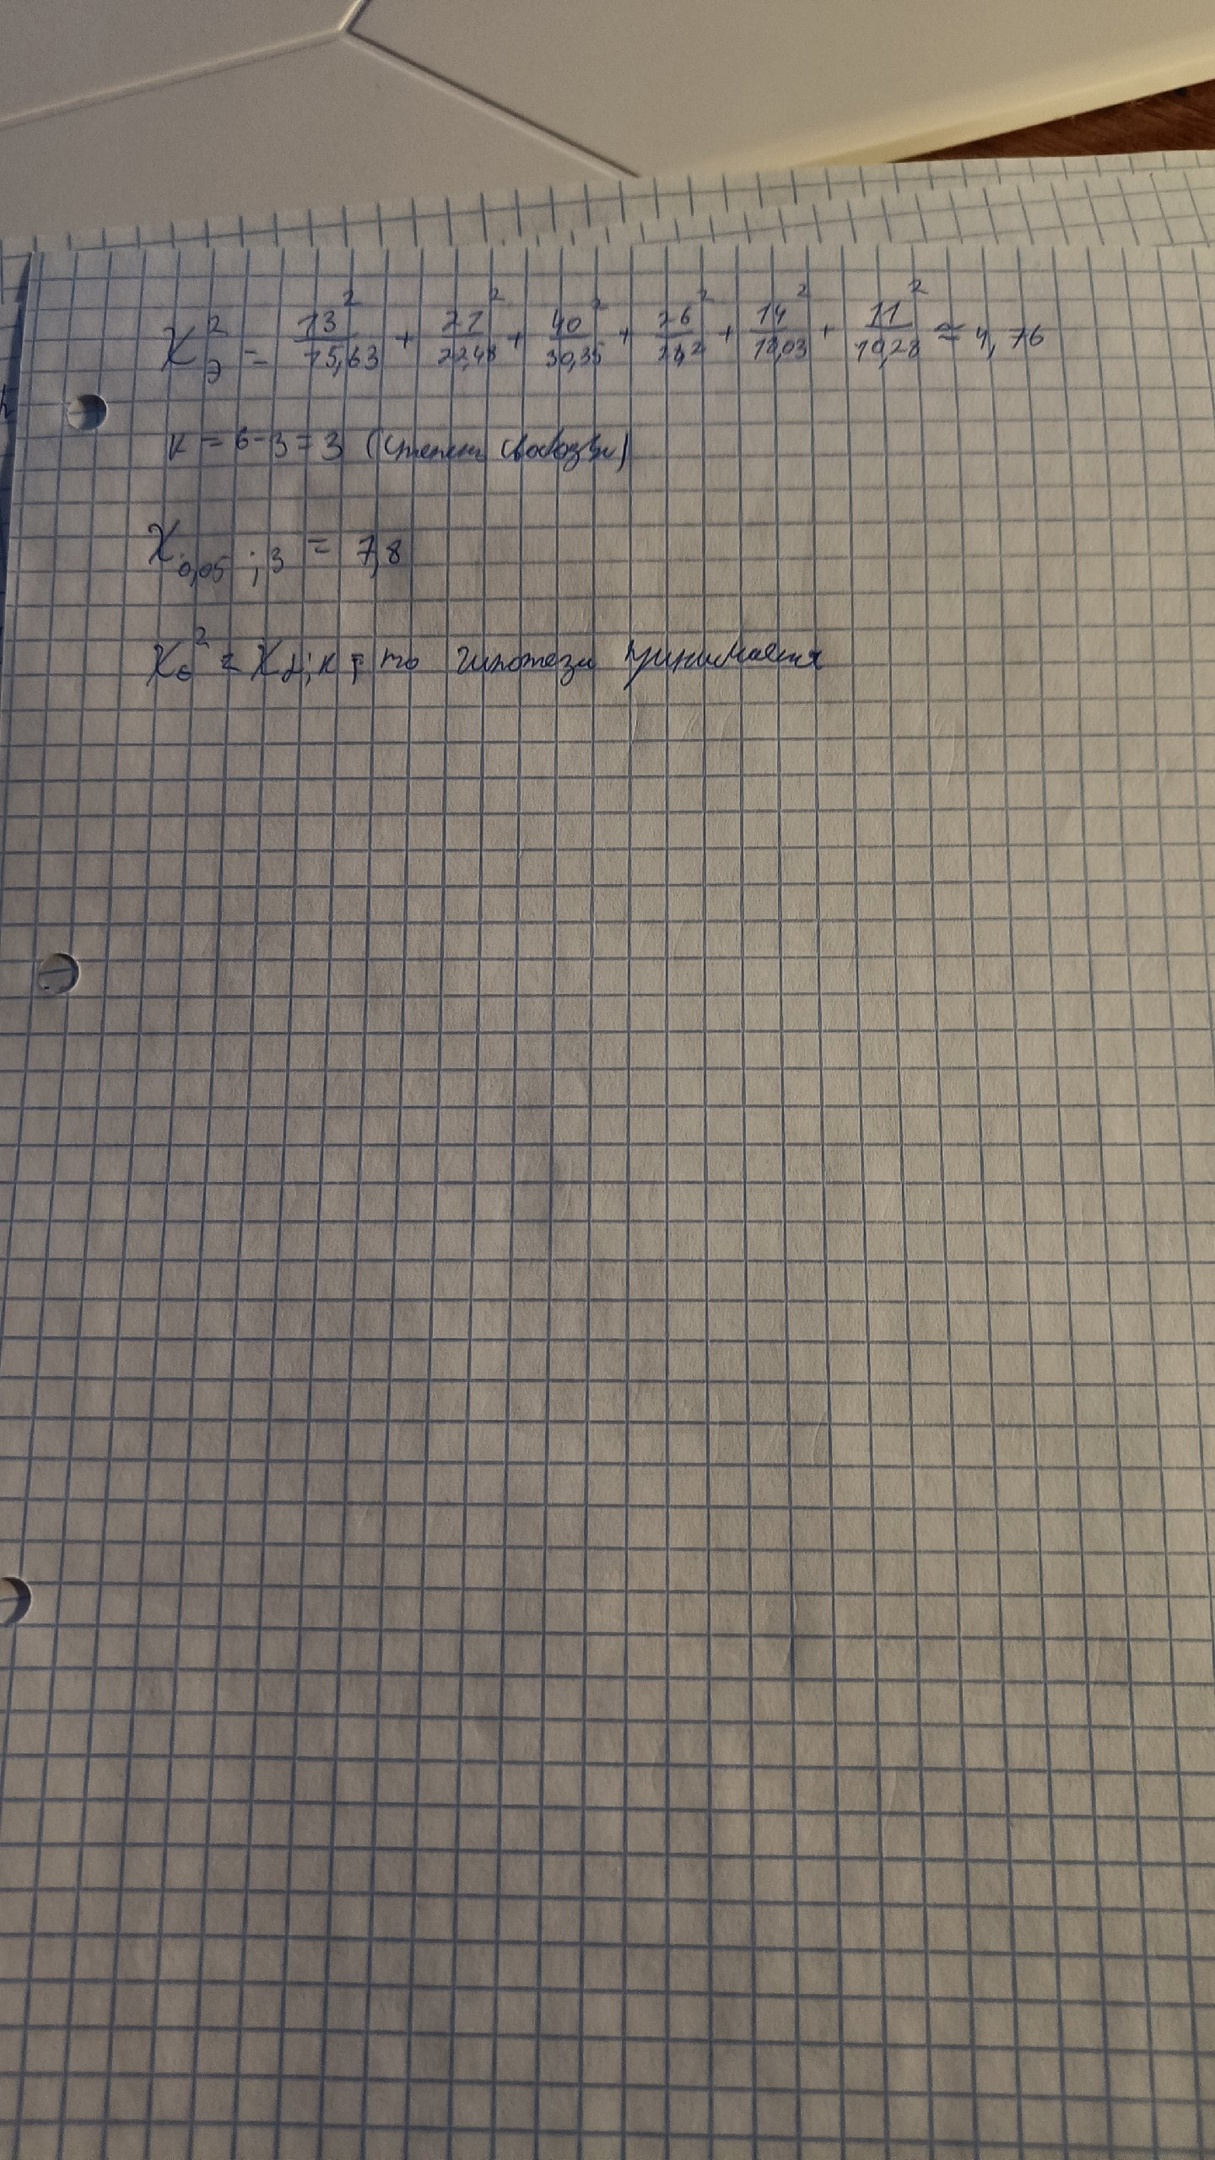 χ²э = 13²/15,63 + 21²/22,48 + 40²/30,35 + 26²/24,2 + 14²/18,03 + 11²/10,28 ≈ 4,76
к = 6-3 = 3 (степень свободы)
χ 0,05 ; 3 = 7,8
то гипотеза принимается